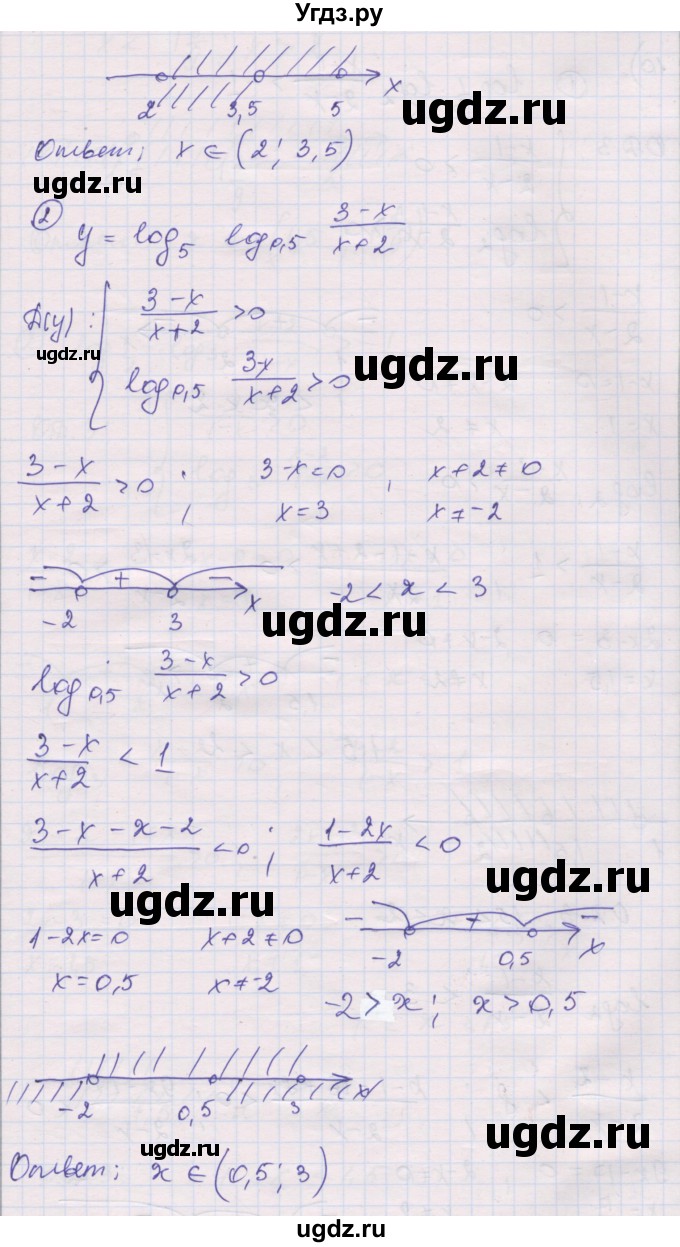 Угдз.ру
2 3,5 5 x
ugdz.ru
Ответ; x ∈ (2; 3,5)
ugdz.ru
② y = log₅ log₀,₅ (3-x)/(x+2)
Д(y): { (3-x)/(x+2) > 0
ugdz.ru
log₀,₅ (3-x)/(x+2) > 0
ugdz.ru
(3-x)/(x+2) > 0 ; 3-x=0 , x+2≠0
x=3 x≠-2
- + -
-2 3 x -2 < x < 3
ugdz.ru
log₀,₅ (3-x)/(x+2) > 0
(3-x)/(x+2) < 1
(3-x-x-2)/(x+2) < 0 ; (1-2x)/(x+2) < 0
ugdz.ru
ugdz.ru
1-2x=0 x+2≠0
- + -
-2 0,5 x
x=0,5 x≠-2
-2 > x ; x > 0,5
-2 0,5 3 x
ugdz.ru
ugdz.ru
Ответ; x ∈ (0,5; 3)
ugdz.ru